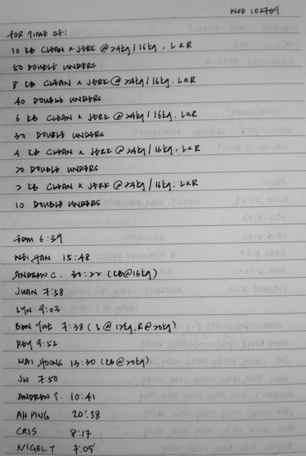 WOD 102709
FOR TIME OF:
10 KB CLEAN & JERK @ 24kg / 16kg, L&R
50 DOUBLE UNDERS
8 KB CLEAN & JERK @ 24kg / 16kg, L&R
40 DOUBLE UNDERS
6 KB CLEAN & JERK @ 24kg / 16kg, L&R
30 DOUBLE UNDERS
4 KB CLEAN & JERK @ 24kg / 16kg, L&R
20 DOUBLE UNDERS
2 KB CLEAN & JERK @ 24kg / 16kg, L&R
10 DOUBLE UNDERS
6:39
WEI HAN 15:48
ANDREW C. 30:22 (KB@16kg)
JUAN 7:58
LYN 9:03
7:38 (L@12kg, R@20kg)
ROY 9:52
WAI HOONG 13:30 (KB@20kg)
JW 7:50
ANDREW T. 10:41
AH PING 20:38
CRIS 8:17
NIGEL T 7:05